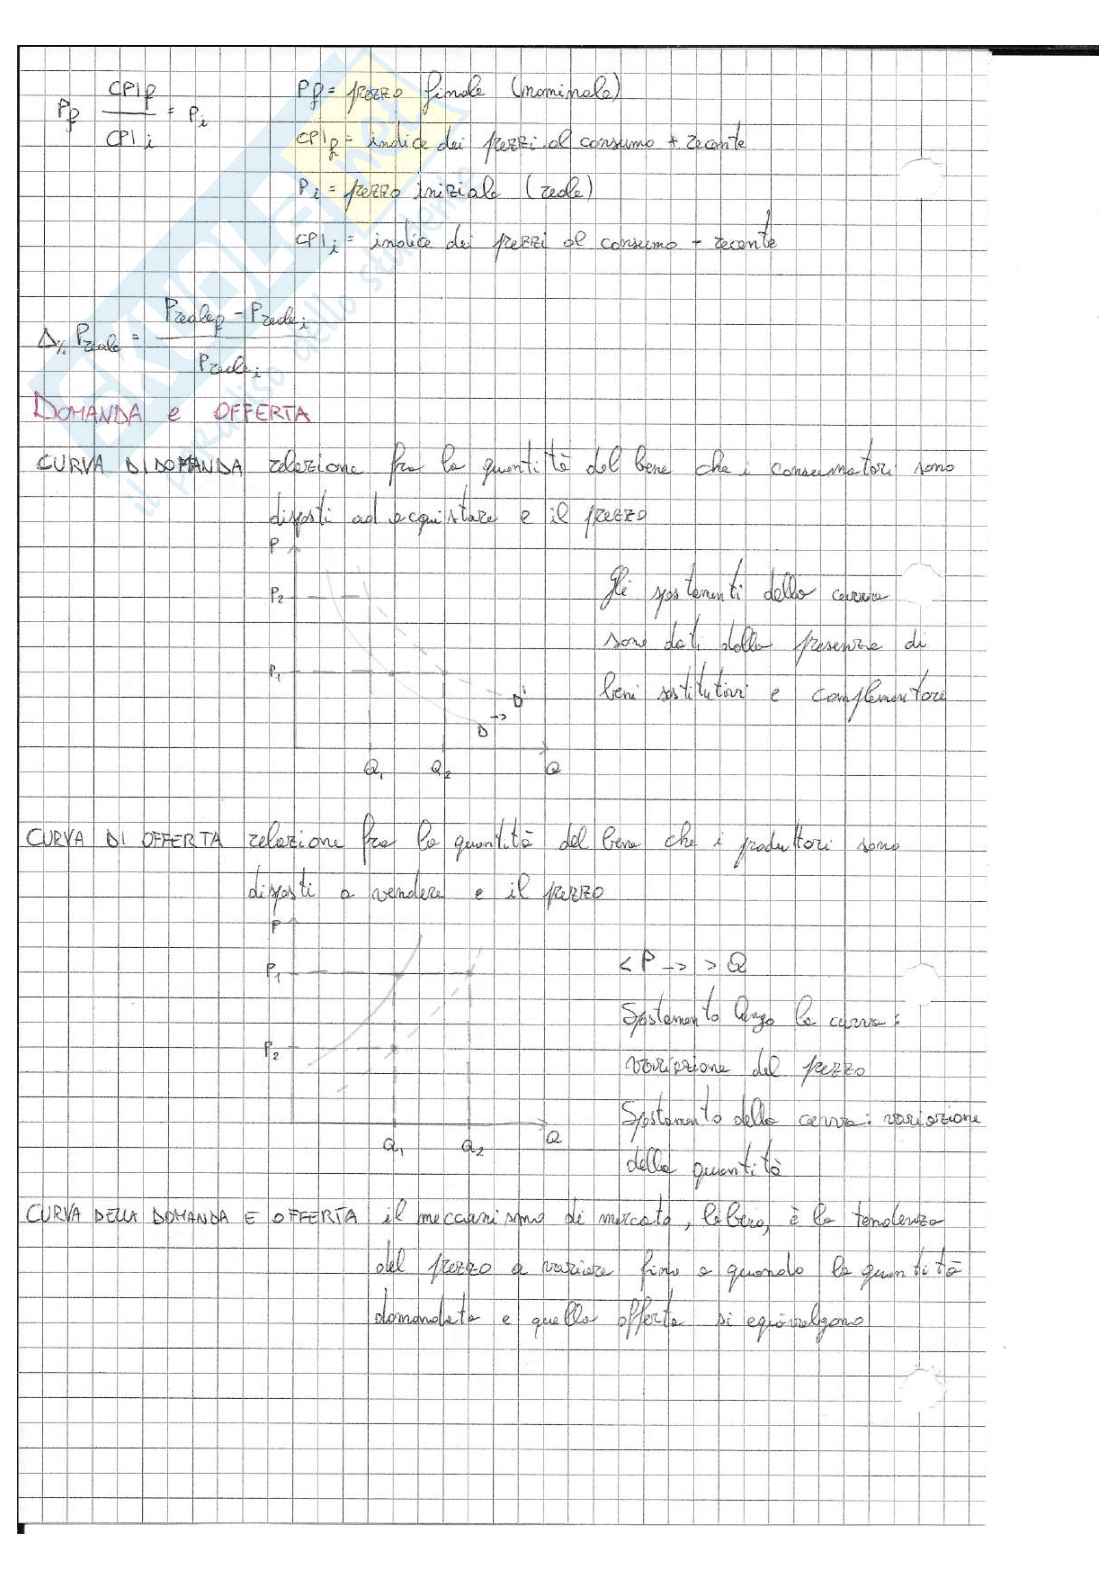 Pf CPIf / CPIi = Pi
Pf = prezzo finale (nominale)
CPIf = indice dei prezzi al consumo + recente
Pi = prezzo iniziale (reale)
CPIi = indice dei prezzi al consumo - recente
Δ% Preale = Prealef - Prealei / Prealei
DOMANDA e OFFERTA
CURVA DI DOMANDA relazione fra la quantità del bene che i consumatori sono
disposti ad acquistare e il prezzo
P
P2
P1
D -> D'
Q1 Q2 Q
Gli spostamenti della curva
sono dati dalla presenza di
beni sostitutivi e complementari
CURVA DI OFFERTA relazione fra la quantità del bene che i produttori sono
disposti a vendere e il prezzo
P
P1
P2
Q1 Q2 Q
< P -> > Q
Spostamento lungo la curva:
variazione del prezzo
Spostamento della curva: variazione
della quantità
CURVA DELLA DOMANDA E OFFERTA il meccanismo di mercato, libero, è la tendenza
del prezzo a variare fino a quando la quantità
domandata e quella offerta si equivalgono
SKUOLA.net
il paradiso dello studente